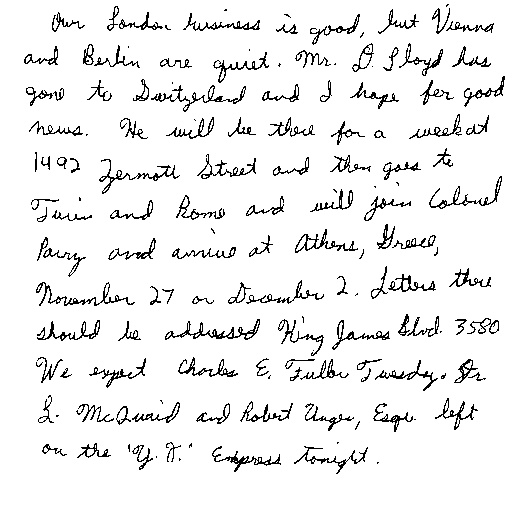 Our London business is good, but Vienna
and Berlin are quiet. Mr. D. Lloyd has
gone to Switzerland and I hope for good
news. He will be there for a week at
1492 Zermott Street and then goes to
Turin and Rome and will join Colonel
Parry and arrive at Athens, Greece,
November 27 or December 2. Letters there
should be addressed King James Blvd. 3580
We expect Charles E. Fuller Tuesday. Dr.
L. McQuaid and Robert Unger, Esq. left
on the "Y.X." Express tonight.